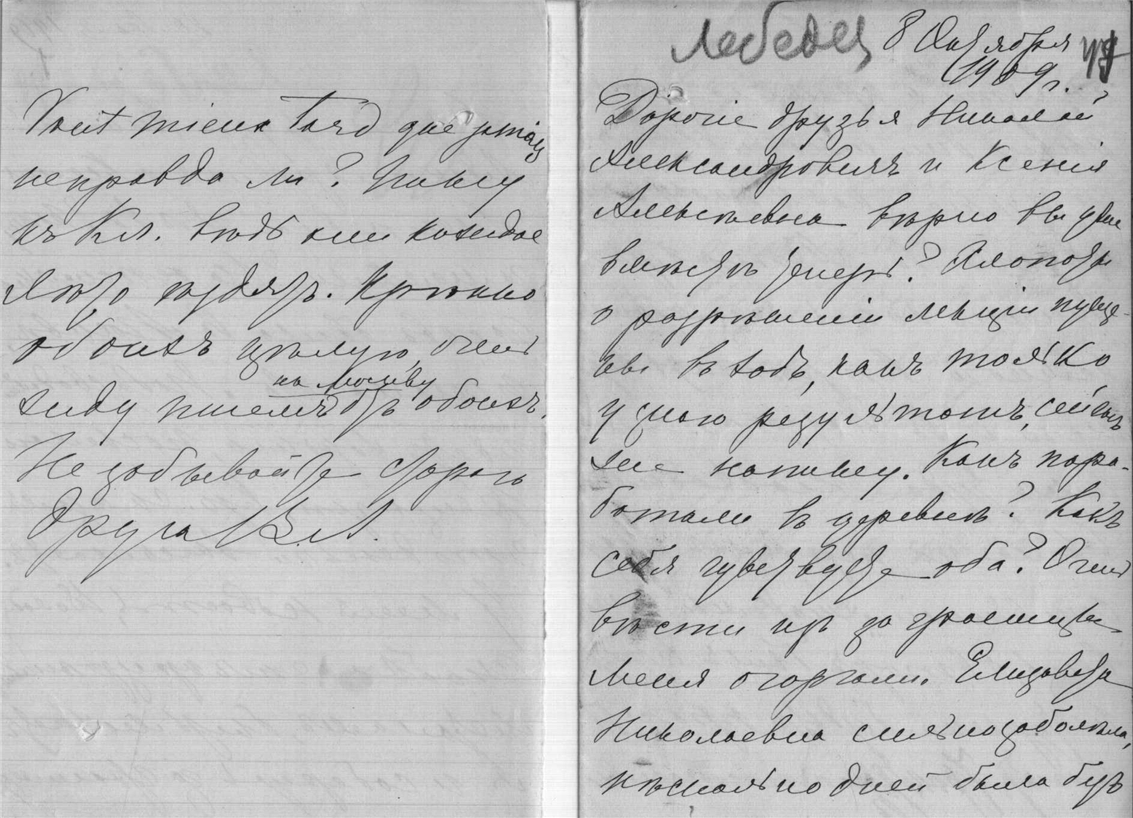 Vaut mieux tard que jamais
неправда ли? Пишу
къ Кл. вѣдь они каждое
лѣто ѣздятъ. Крѣпко
обоихъ цѣлую, очень
на Москву
жду писемъ отъ обоихъ.
Не забывайте стараго
друга В. Л.
Лебедев 8 Октября
1909 г.
Дорогіе друзья Николай
Александровичъ и Ксенія
Алексѣевна вѣрно вы уже
вмѣстѣ теперь? Хлопоты
о разрѣшеніи лекціи пуще-
ны въ ходъ, какъ только
узнаю результатъ, сейчасъ
же напишу. Какъ пора-
ботали въ деревнѣ? Какъ
себя чувствуете оба? Очень
вѣсти изъ за границы
меня огорчали. Елизавета
Николаевна сильно заболѣла,
нѣсколько дней была безъ